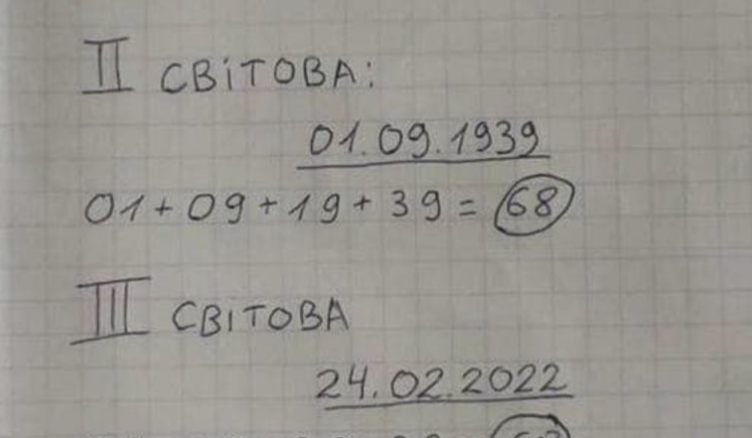 II СВіТОВА:
01.09.1939
01+09+19+39=68
III СВіТОВА
24.02.2022